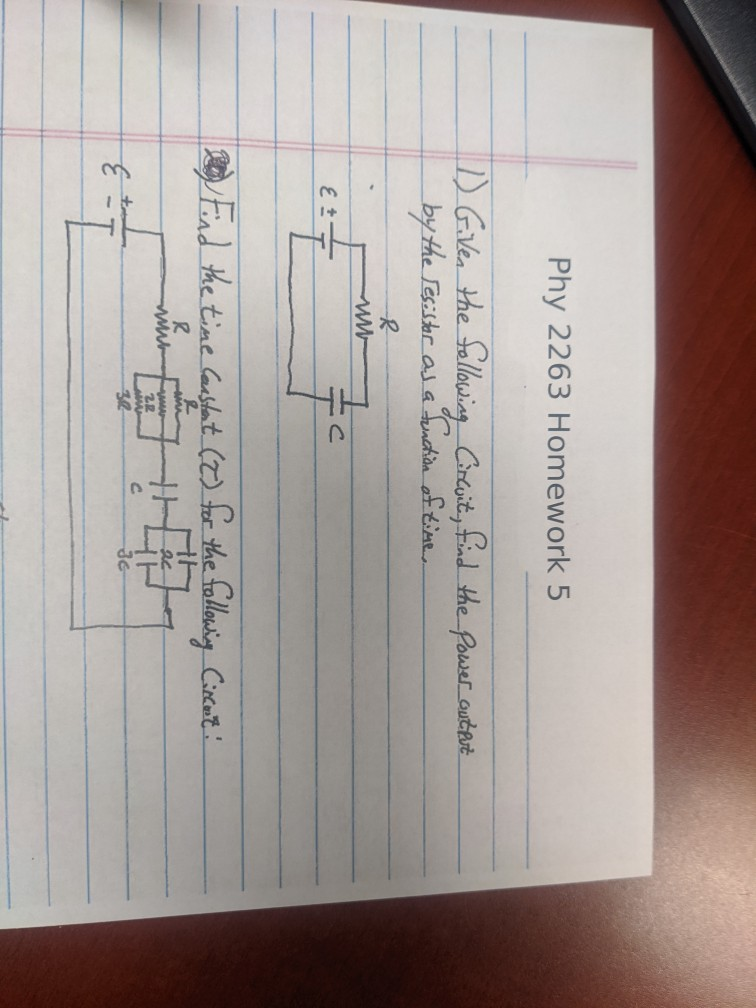 Phy 2263 Homework 5
1) Given the following Circuit, find the Power output
by the resistor as a function of time.
R
ε + -
C
2) Find the time Constant (τ) for the following Circuit:
R
R
2R
3R
C
2C
3C
ε + -